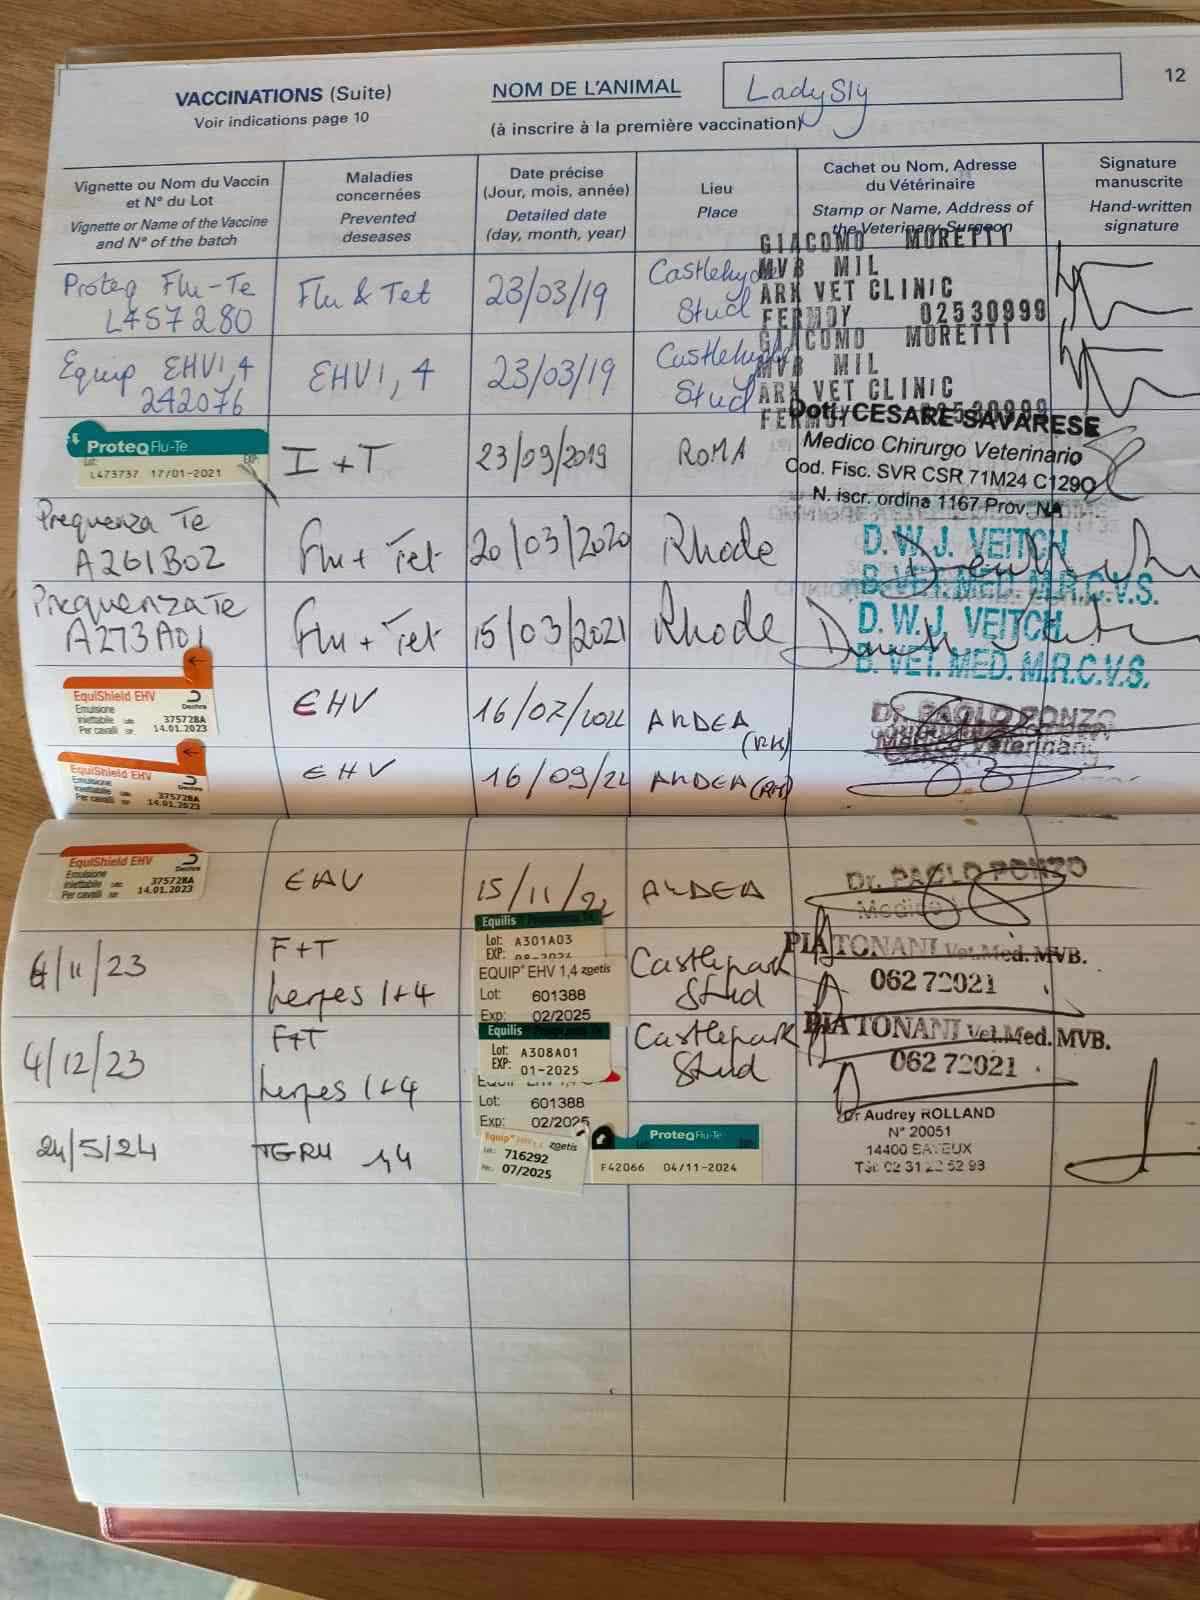 VACCINATIONS (Suite)
Voir indications page 10
NOM DE L'ANIMAL
(à inscrire à la première vaccination)
LadySly
12
Vignette ou Nom du Vaccin
et N° du Lot
Vignette or Name of the Vaccine
and N° of the batch
Maladies
concernées
Prevented
deseases
Date précise
(Jour, mois, année)
Detailed date
(day, month, year)
Lieu
Place
Cachet ou Nom, Adresse
du Vétérinaire
Stamp or Name, Address of
the Veterinary Surgeon
Signature
manuscrite
Hand-written
signature
Proteq Flu-Te
L457280
Flu & Tet
23/03/19
Castlehyde
Stud
GIACOMO MORETTI
MVB MIL
ARK VET CLINIC
FERMOY 02530999
Equip EHV1,4
242076
EHV1, 4
23/03/19
Castlehyde
Stud
GIACOMO MORETTI
MVB MIL
ARK VET CLINIC
FERMOY 02530999
ProteqFlu-Te
Lot: EXP:
L473737 17/01-2021
I + T
23/09/2019
ROMA
Dott. CESARE SAVARESE
Medico Chirurgo Veterinario
Cod. Fisc. SVR CSR 71M24 C129O
N. iscr. ordina 1167 Prov. NA
Prequenza Te
A261B02
Flu + Tet
20/03/2020
Rhode
D. W. J. VEITCH
B. VET. MED. M.R.C.V.S.
Prequenza Te
A273A01
Flu + Tet
15/03/2021
Rhode
D. W. J. VEITCH
B. VET. MED. M.R.C.V.S.
EquiShield EHV
Emulsione
iniettabile 375728A
Per cavalli 14.01.2023
Dechra
EHV
16/07/2022
ARDEA
(RM)
Dr. PAOLO PONZO
Medico Veterinario
EquiShield EHV
Emulsione
iniettabile 375728A
Per cavalli 14.01.2023
Dechra
EHV
16/09/22
ARDEA (RM)
EquiShield EHV
Emulsione
iniettabile 375728A
Per cavalli 14.01.2023
Dechra
EHV
15/11/22
ARDEA
Dr. PAOLO PONZO
Medico
4/11/23
F+T
herpes 1+4
Equilis
Lot: A301A03
EXP: 08-2024
EQUIP® EHV 1,4 zoetis
Lot: 601388
Exp: 02/2025
Castlepark
Stud
PIA TONANI Vet.Med. MVB.
062 72021
4/12/23
F+T
herpes 1+4
Equilis
Lot: A308A01
EXP: 01-2025
Lot: 601388
Exp: 02/2025
Castlepark
Stud
PIA TONANI Vet.Med. MVB.
062 72021
24/5/24
TGRH 1,4
Equip zoetis
716292
07/2025
ProteqFlu-Te
F42066 04/11-2024
Dr Audrey ROLLAND
N° 20051
14400 BAYEUX
Tél: 02 31 22 52 93